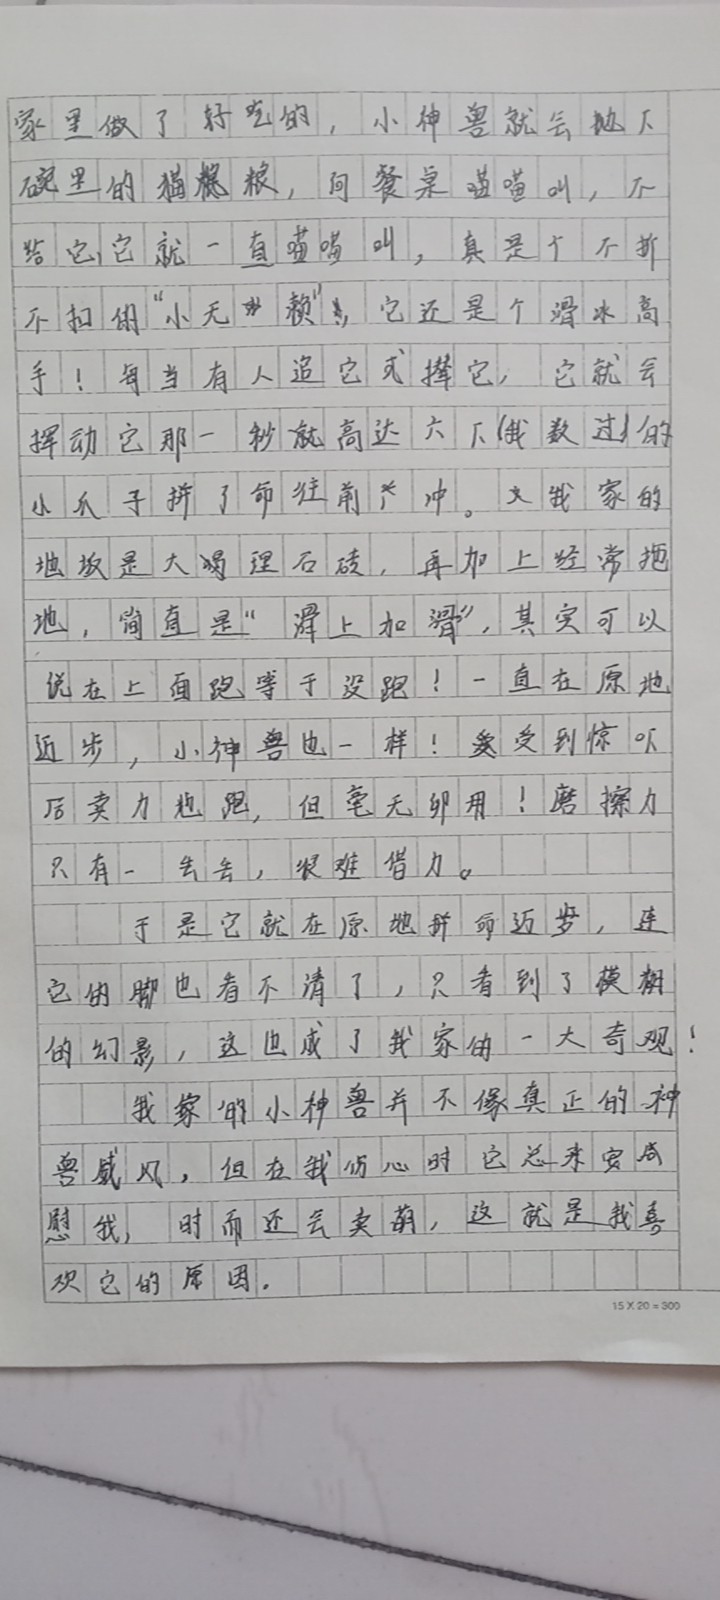 家里做了好吃的，小神兽就会抛下
碗里的猫粮，向餐桌喵喵叫，不
给它，它就一直喵喵叫，真是个不折
不扣的“小无赖”，它还是个滑冰高
手！每当有人追它或撵它，它就会
挥动它那一秒就高达六下(我数过)的
小爪子拼了命往前冲。我家的
地板是大理石砖，再加上经常拖
地，简直是“滑上加滑”，其实可以
说在上面跑等于没跑！一直在原地
迈步，小神兽也一样！受到惊吓
后卖力地跑，但毫无卵用！磨擦力
只有一丢丢，很难借力。
于是它就在原地拼命迈步，连
它的脚也看不清了，只看到了模糊
的幻影，这也成了我家的一大奇观！
我家的小神兽并不像真正的神
兽威风，但在我伤心时它总来安
慰我，时而还会卖萌，这就是我喜
欢它的原因。
15 X 20 = 300